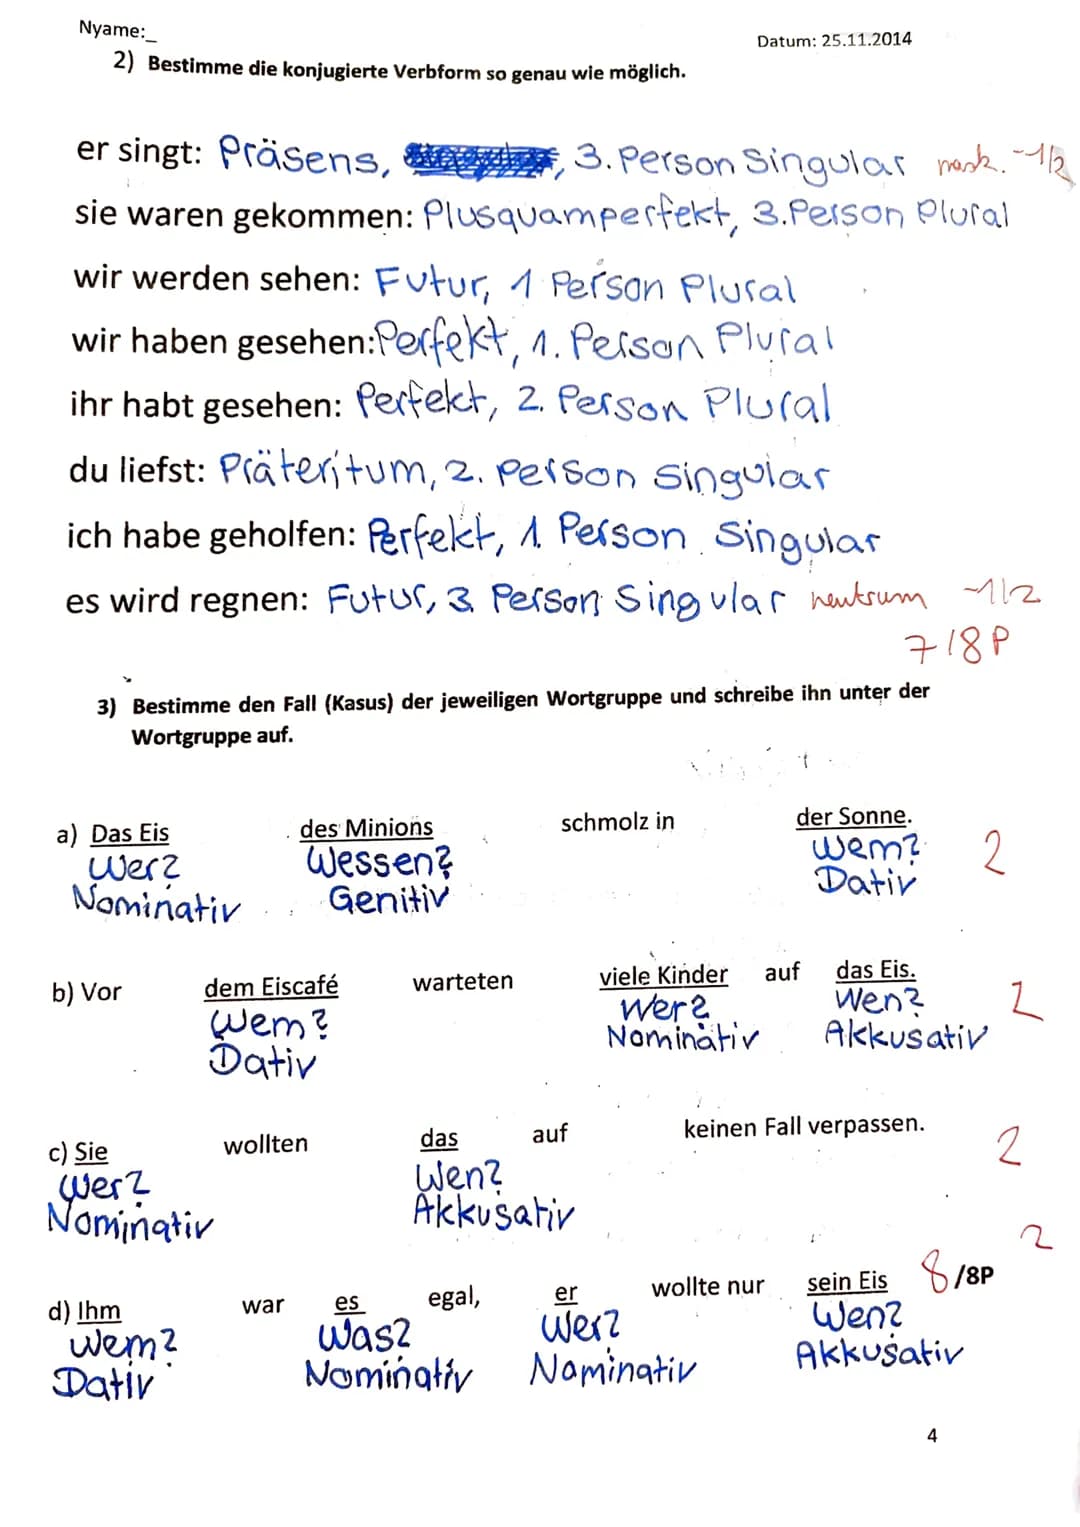 Nyame:_
Datum: 25.11.2014
2) Bestimme die konjugierte Verbform so genau wie möglich.
er singt: Präsens, , 3. Person Singular mask. -1/2
sie waren gekommen: Plusquamperfekt, 3. Person Plural
wir werden sehen: Futur, 1 Person Plural
wir haben gesehen: Perfekt, 1. Person Plural
ihr habt gesehen: Perfekt, 2. Person Plural
du liefst: Präteritum, 2. Person Singular
ich habe geholfen: Perfekt, 1. Person Singular
es wird regnen: Futur, 3 Person Singular neutrum -1/2
7/8P
3) Bestimme den Fall (Kasus) der jeweiligen Wortgruppe und schreibe ihn unter der
Wortgruppe auf.
a) Das Eis des Minions schmolz in der Sonne.
Wer? Wessen? Wem? 2
Nominativ Genitiv Dativ
b) Vor dem Eiscafé warteten viele Kinder auf das Eis.
Wem? Wer? Wen? 2
Dativ Nominativ Akkusativ
c) Sie wollten das auf keinen Fall verpassen.
Wer? Wen? 2
Nominativ Akkusativ
2
d) Ihm war es egal, er wollte nur sein Eis 8/8P
Wem? Was? Wer? Wen?
Dativ Nominativ Nominativ Akkusativ
4